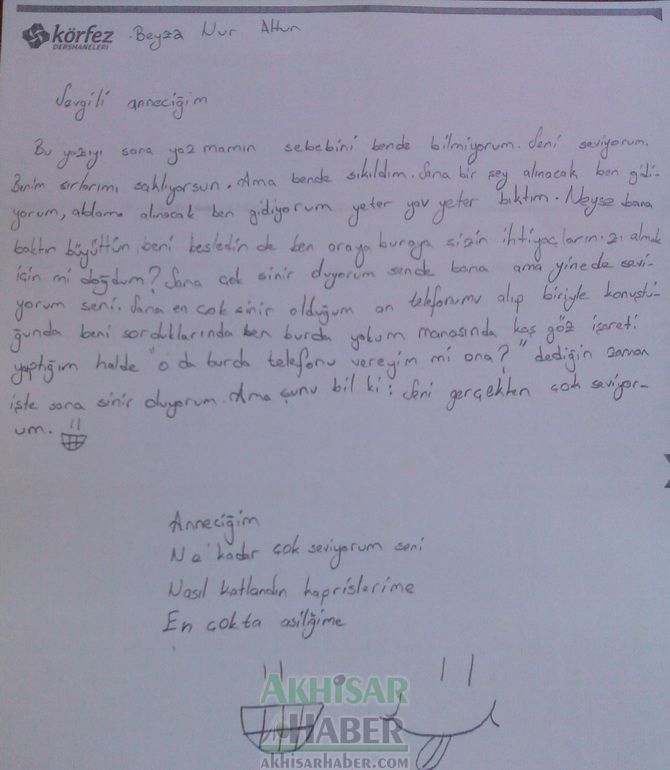 körfez Beyza Nur Altun
DERSHANELERİ
Sevgili anneciğim
Bu yazıyı sana yazmamın sebebini bende bilmiyorum. Seni seviyorum.
Benim sırlarımı saklıyorsun. Ama bende sıkıldım. Sana bir şey alınacak ben gidi-
yorum, ablama alınacak ben gidiyorum yeter yav yeter bıktım. Neyse bana
baktın büyüttün beni besledin de ben oraya buraya sizin ihtiyaçlarınızı almak
için mi doğdum? Sana çok sinir duyorum sende bana ama yinede sevi-
yorum seni. Sana en çok sinir olduğum an telefonumu alıp biriyle konuştu-
ğunda beni sorduklarında ben burda yokum manasında kaş göz işareti
yaptığım halde "o da burda telefonu vereyim mi ona?" dediğin zaman
işte sana sinir duyorum. Ama şunu bil ki: Seni gerçekten çok seviyor-
um.
Anneciğim
Ne kadar çok seviyorum seni
Nasıl katlandın kaprislerime
En çokta asiliğime
AKHİSAR
HABER
akhisarhaber.com